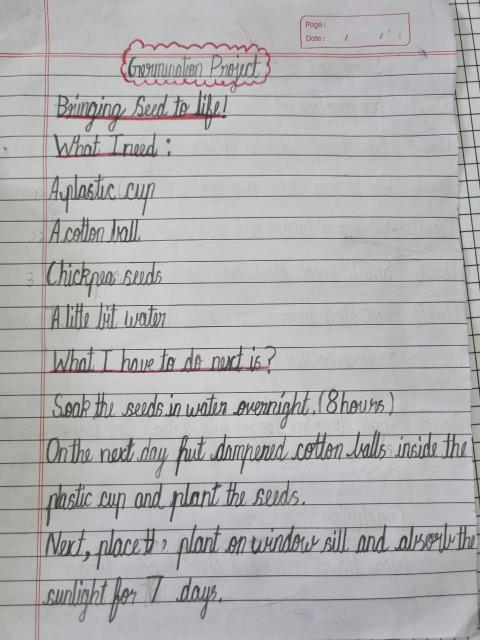 Page:
Date: / /
Germination Project
Bringing Seed to life!
What I need:
A plastic cup
A cotton ball
Chickpea seeds
A little bit water
What I have to do next is?
Soak the seeds in water overnight. (8 hours)
On the next day put dampened cotton balls inside the
plastic cup and plant the seeds.
Next, place the plant on window sill and absorb the
sunlight for 7 days.